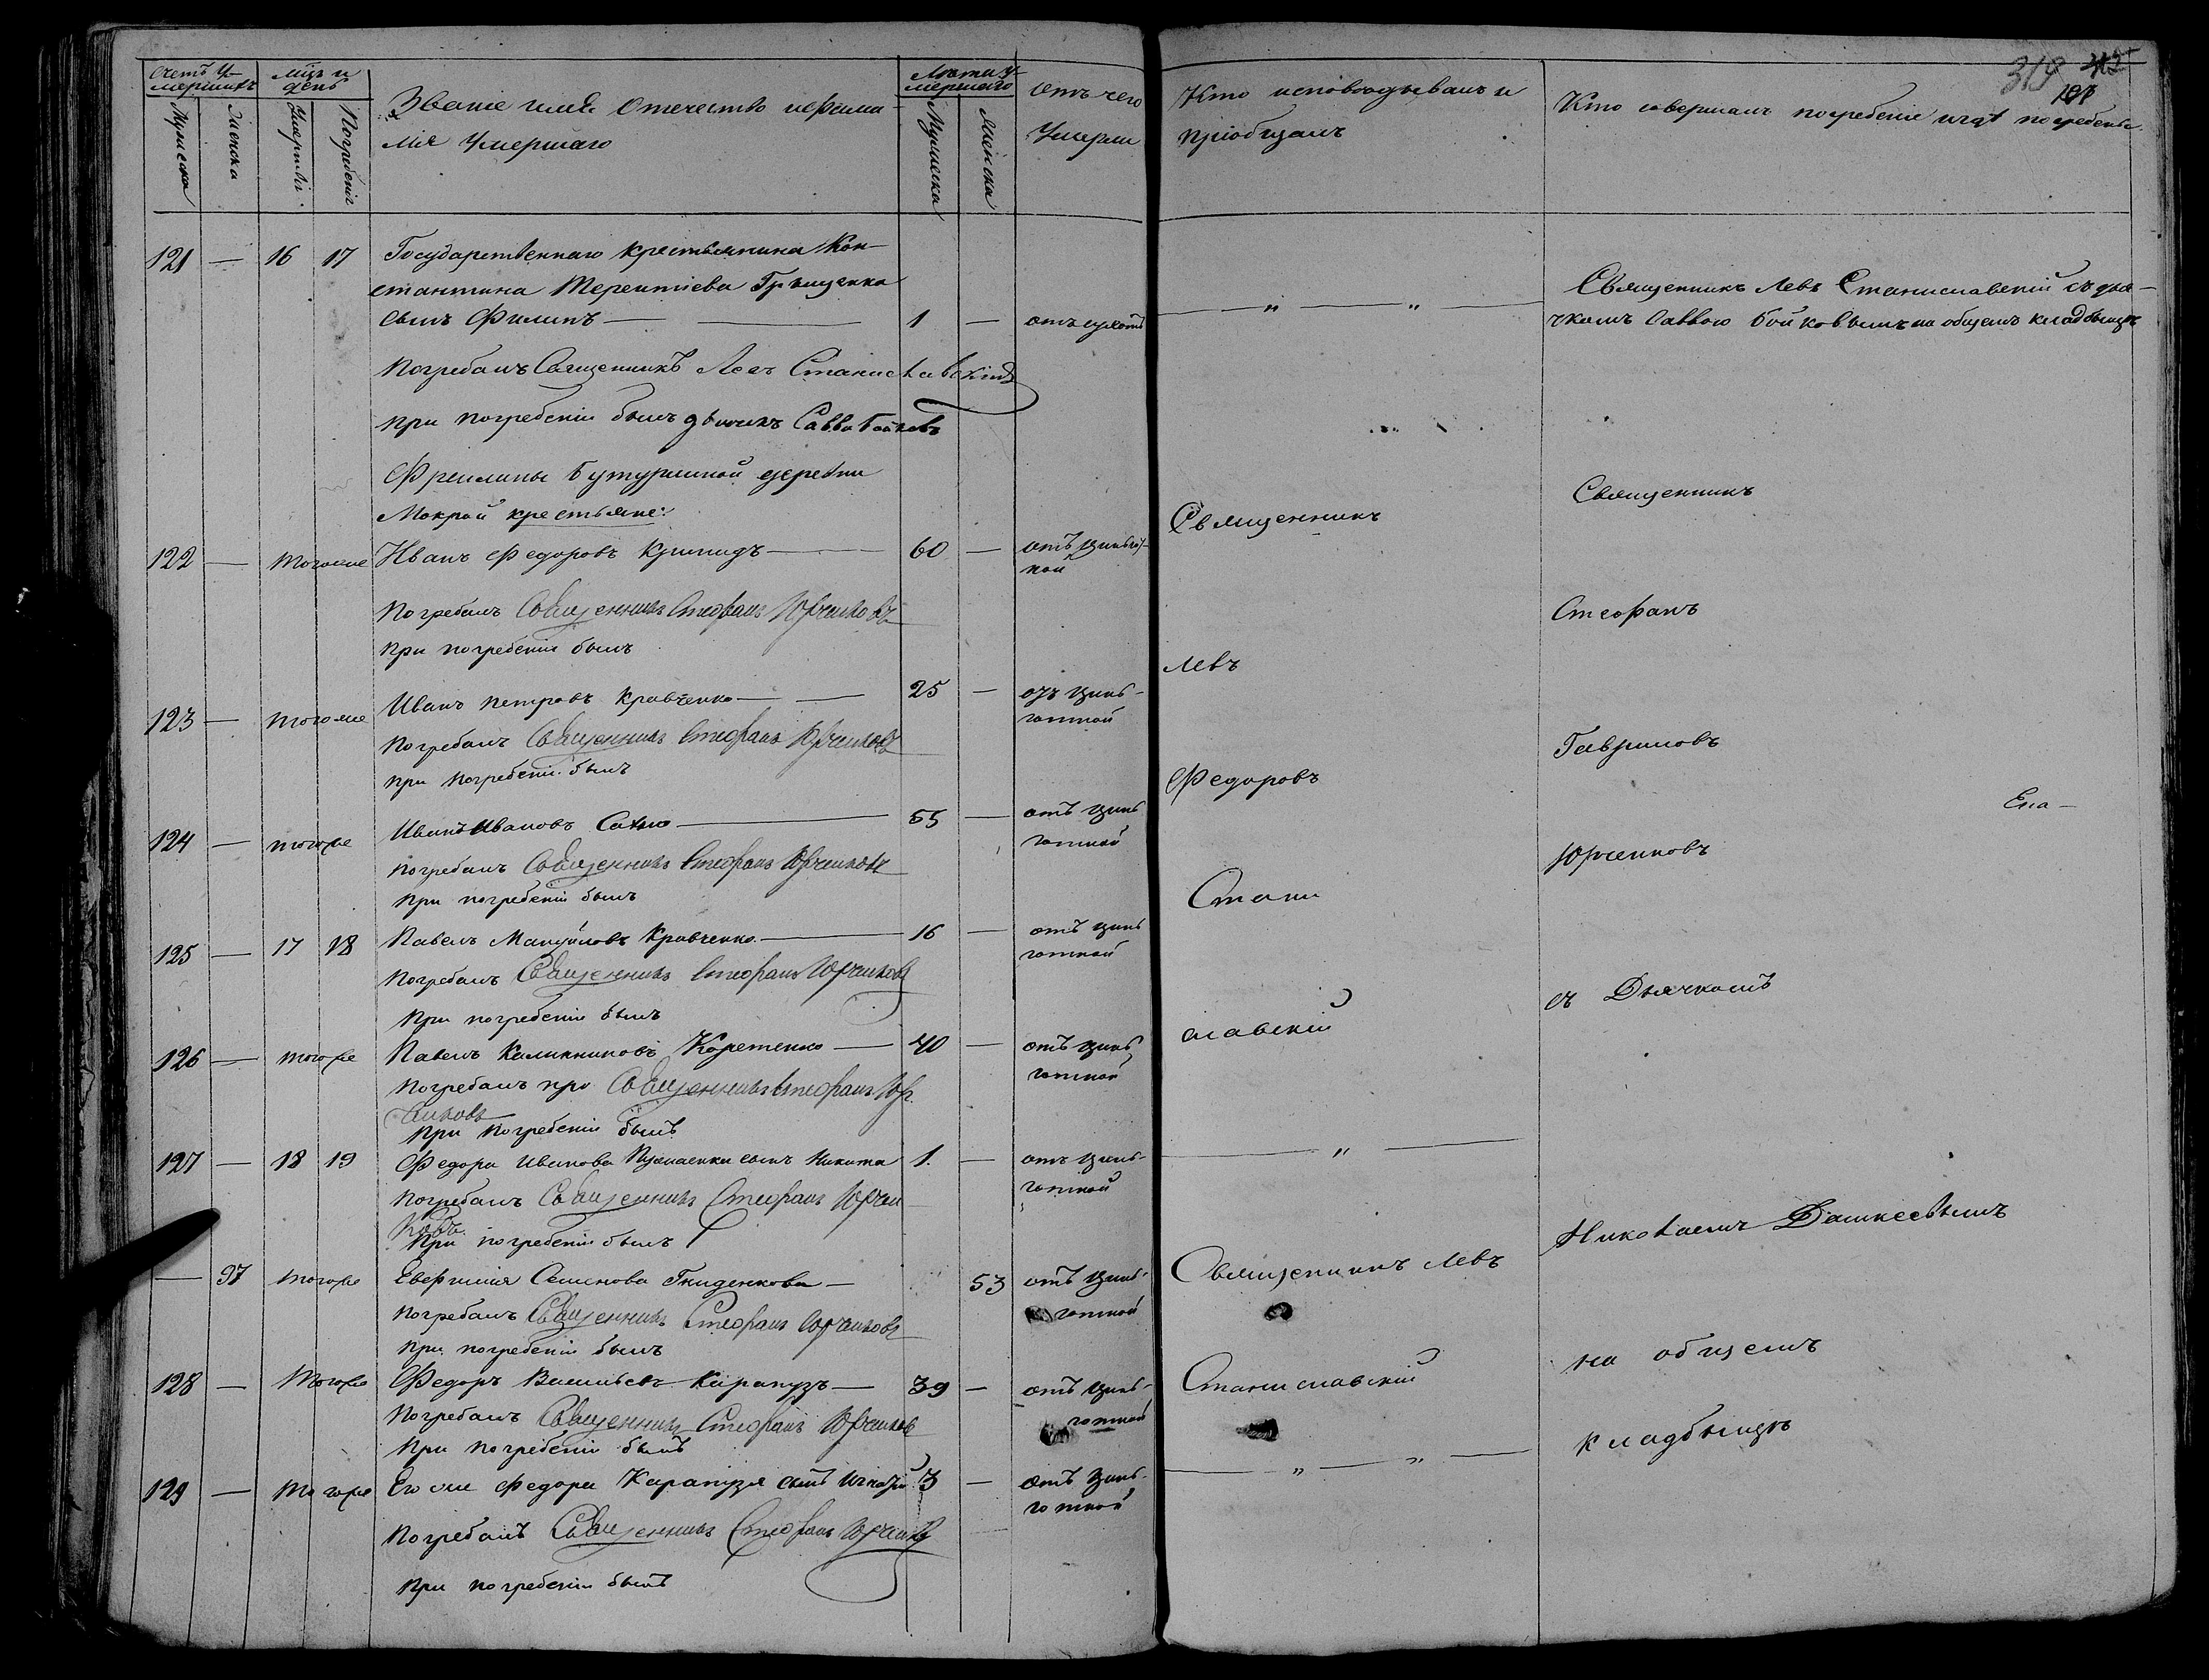 319 412
107
Счетъ у-
мершихъ
Мужеска
Женска
мцъ и
день
Умертвія
Погребенія
Званіе имя отечество и фами-
лія умершаго
Лѣта у-
мершаго
Мужеска
Женска
отъ чего
умерли
Кто исповѣдывалъ и
пріобщалъ
Кто совершалъ погребеніе и гдѣ погребены
121 — 16 17 Государственнаго крестьянина Кон-
стантина Терентіева Грищенка
сынъ Филипъ — — 1 — отъ сухотъ — „ — „ —
Священникъ Левъ Станиславскій съ дья-
чкомъ Саввою Бойковымъ на общемъ кладбищѣ
Погребалъ Священникъ Левъ Станиславскій
при погребеніи былъ дьячекъ Савва Бойковъ
Фрейлины Бутурлиной деревни
Мокрой крестьяне:
122 — тогоже Иванъ Федоровъ — 60 — отъ цынгот-
ной
Погребалъ Священникъ Стефанъ Юрченковъ
при погребеніи былъ
123 — тогоже Иванъ Петровъ Кравченко — — 25 — отъ цынг-
готной
Погребалъ Священникъ Стефанъ Юрченковъ
при погребеніи былъ
124 — тогоже Иванъ Ивановъ — 55 — отъ цынг
готной
Погребалъ Священникъ Стефанъ Юрченковъ
при погребеніи былъ
125 — 17 18 Павелъ Мануйловъ Кравченко — 16 — отъ цынг
готной
Погребалъ Священникъ Стефанъ Юрченковъ
При погребеніи былъ
126 — тогоже Павелъ Калинниковъ — 40 — отъ цынг
готной
Погребалъ при Священникъ Стефанъ Юр
ченковъ
При погребеніи былъ
127 — 18 19 Федора Иванова сынъ Никита 1. — отъ цынг-
готной
Погребалъ Священникъ Стефанъ Юрчен
ковъ
При погребеніи былъ
— 97 тогоже Семенова Гниденкова — 53 отъ цынг-
готной
Погребалъ Священникъ Стефанъ Юрченковъ
при погребеніи былъ
128 — тогоже Федоръ Васильевъ Карапузъ — 39 — отъ цынг-
готной
Погребалъ Священникъ Стефанъ Юрченков
При погребеніи былъ
129 — тогоже Его же Федора Карапузя сынъ Игнатій 3 — отъ цынг-
готной
Погребалъ Священникъ Стефанъ Юрченков
При погребеніи былъ
Священникъ
Левъ
Федоровъ
Стани
славскій
— „ —
Священникъ Левъ
Станиславскій
— „ — „ —
Священникъ
Стефанъ
Гавриловъ
Юрченковъ
съ Дьячкомъ
Николаемъ Дашкеевымъ
на общемъ
кладбищѣ